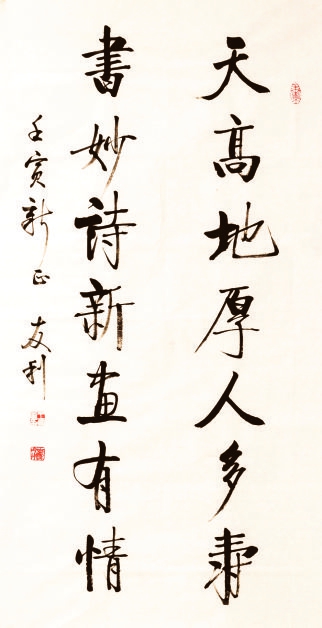 天高地厚人多寿
書妙詩新画有情
壬寅新正 友利